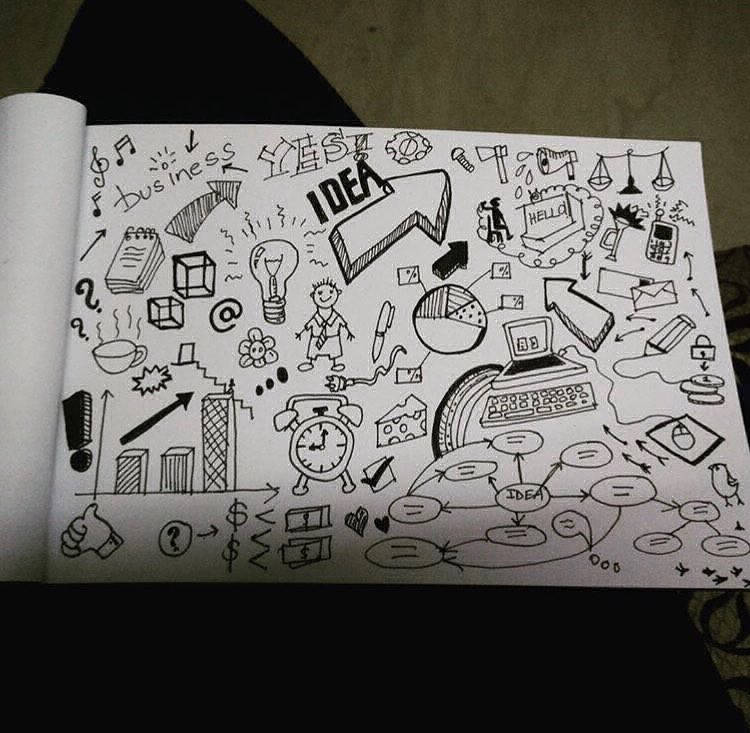 business
YES!
IDEA
HELLO
%
%
%
%
@
?
?
!
IDEA
?
$
$
$
$